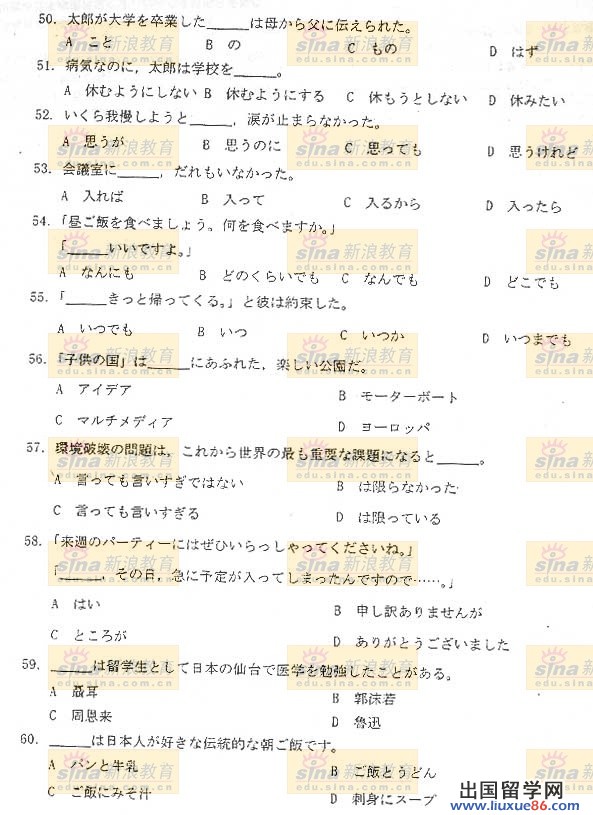 50. 太郎が大学を卒業した______は母から父に伝えられた。
A こと B の C もの D はず
51. 病気なのに，太郎は学校を______。
A 休むようにしない B 休むようにする C 休もうとしない D 休みたい
52. いくら我慢しようと______，涙が止まらなかった。
A 思うが B 思うのに C 思っても D 思うけれど
53. 会議室に______，だれもいなかった。
A 入れば B 入って C 入るから D 入ったら
54. 「昼ご飯を食べましょう。何を食べますか。」
「______いいですよ。」
A なんにも B どのくらいでも C なんでも D どこでも
55. 「______きっと帰ってくる。」と彼は約束した。
A いつでも B いつ C いつか D いつまでも
56. 「子供の国」は______にあふれた，楽しい公園だ。
A アイデア B モーターボート
C マルチメディア D ヨーロッパ
57. 環境破壊の問題は，これから世界の最も重要な課題になると______。
A 言っても言いすぎではない B は限らなかった
C 言っても言いすぎる D は限っている
58. 「来週のパーティーにはぜひいらっしゃってくださいね。」
「______，その日，急に予定が入ってしまったんですので……。」
A はい B 申し訳ありませんが
C ところが D ありがとうございました
59. ______は留学生として日本の仙台で医学を勉強したことがある。
A 聶耳 B 郭沫若
C 周恩来 D 魯迅
60. ______は日本人が好きな伝統的な朝ご飯です。
A パンと牛乳 B ご飯とうどん
C ご飯にみそ汁 D 刺身にスープ
sina新浪教育
edu.sina.com.cn
出国留学网
www.liuxue86.com